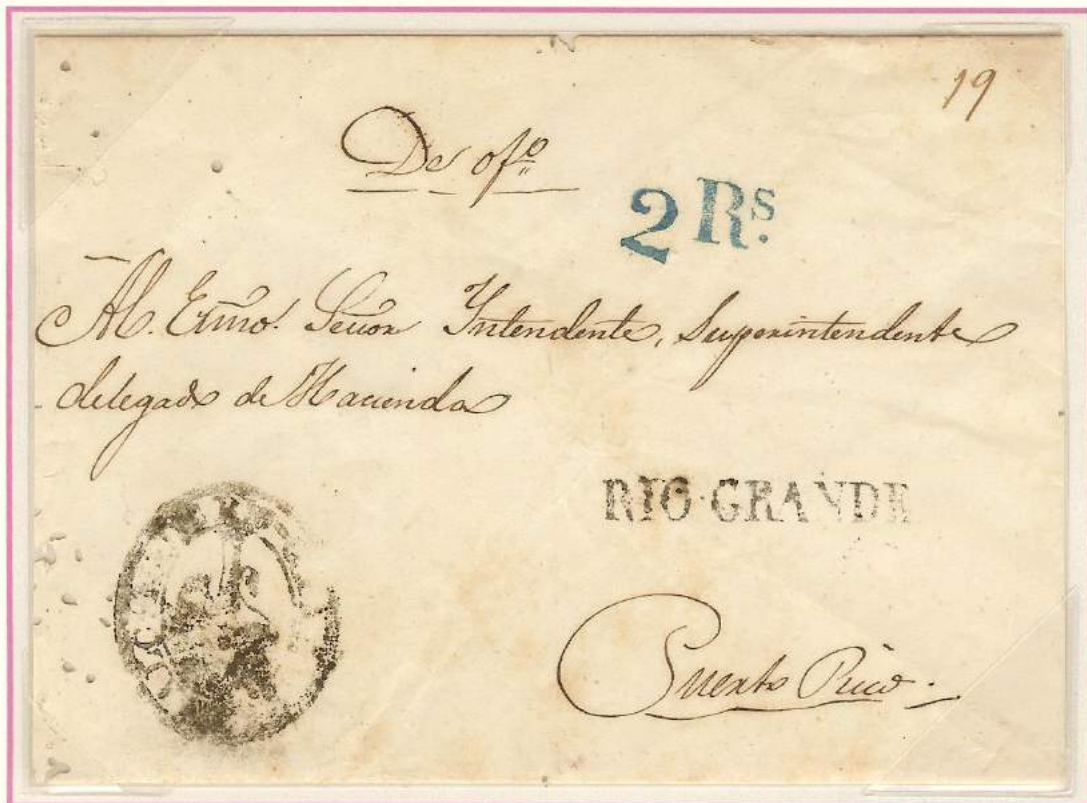 19
De ofo
2 Rs.
Al. Exmo. Señor Intendente, Superintendente
delegado de Hacienda
RIO·GRANDE
Puerto Rico.